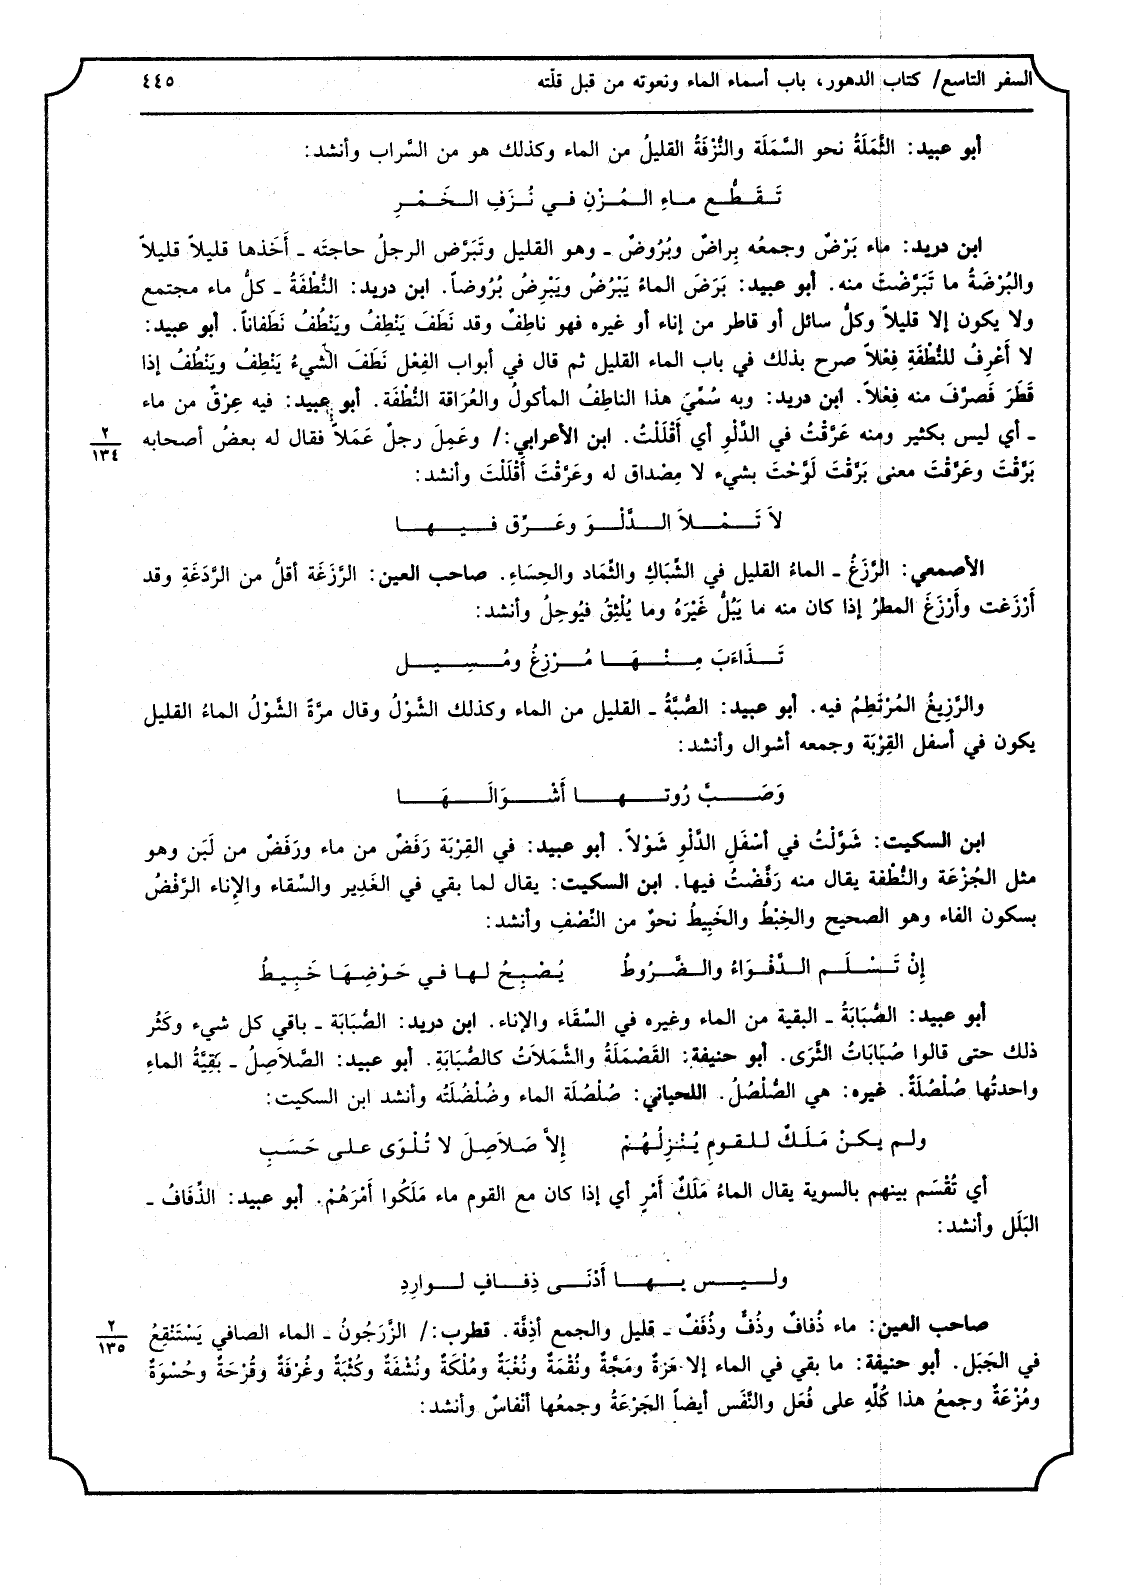 السفر التاسع/ كتاب الدهور، باب أسماء الماء ونعوته من قبل قلّته ٤٤٥
أبو عبيد: الثَّمَلَةُ نحو السَّمَلَة والنُّزْفَةُ القليلُ من الماء وكذلك هو من السَّراب وأنشد:
تَقَطُّع ماءِ المُزْنِ في نُزَفِ الخَمْرِ
ابن دريد: ماء بَرْضٌ وجمعُه بِراضٌ وبُرُوضٌ ـ وهو القليل وتَبَرَّض الرجلُ حاجتَه ـ أَخَذها قليلاً قليلاً
والبُرْضَةُ ما تَبَرَّضْتَ منه. أبو عبيد: بَرَضَ الماءُ يَبْرُضُ ويَبْرِضُ بُرُوضاً. ابن دريد: النُّطْفَةُ ـ كلُّ ماء مجتمع
ولا يكون إلا قليلاً وكلُّ سائل أو قاطر من إناء أو غيره فهو ناطِفٌ وقد نَطَفَ يَنْطِفُ ويَنْطُفُ نَطَفاناً. أبو عبيد:
لا أَعْرِفُ للنُّطْفَةِ فِعْلاً صرح بذلك في باب الماء القليل ثم قال في أبواب الفِعْل نَطَفَ الشيءُ يَنْطِفُ ويَنْطُفُ إذا
قَطَرَ فَصرَّفَ منه فِعْلاً. ابن دريد: وبه سُمِّيَ هذا الناطِفُ المأكولُ والعُرَاقة النُّطْفَة. أبو عبيد: فيه عِرْقٌ من ماء
ـ أي ليس بكثير ومنه عَرَّقْتُ في الدَّلْوِ أي أَقْلَلْتُ. ابن الأعرابي:/ وعَمِلَ رجلٌ عَمَلاً فقال له بعضُ أصحابه ٢/١٣٤
بَرَّقْتَ وعَرَّقْتَ معنى بَرَّقْتَ لَوَّحْتَ بشيء لا مِصْداق له وعَرَّقْتَ أَقْلَلْتَ وأنشد:
لاَ تَمْلاَ الدَّلْوَ وعَرِّق فيها
الأصمعي: الرَّزَغُ ـ الماءُ القليل في الشِّبَاكِ والثِّمَاد والحِسَاءِ. صاحب العين: الرَّزَغَة أقلُّ من الرَّدَغَةِ وقد
أَرْزَغت وأَرْزَغَ المطرُ إذا كان منه ما يَبُلُّ غَيْرَهُ وما يُلْثِقُ فيُوحِلُ وأنشد:
تَذَاءَبَ مِنْهَا مُرْزِغُ ومُسِيل
والرَّزِيغُ المُرْتَطِمُ فيه. أبو عبيد: الصُّبَّةُ ـ القليل من الماء وكذلك الشَّوْلُ وقال مرَّةً الشَّوْلُ الماءُ القليل
يكون في أسفل القِرْبَة وجمعه أشوال وأنشد:
وَصَبَّ رُوتها أَشْوَالَهَا
ابن السكيت: شَوَّلْتُ في أسْفَلِ الدَّلْوِ شَوْلاً. أبو عبيد: في القِرْبَة رَفَضٌ من ماء ورَفَضٌ من لَبَن وهو
مثل الجُزْعَة والنُّطْفة يقال منه رَفَّضْتُ فيها. ابن السكيت: يقال لما بقي في الغَدِير والسِّقاء والإِناء الرَّفْضُ
بسكون الفاء وهو الصحيح والخِبْطُ والخَبِيطُ نحوٌ من النِّصْفِ وأنشد:
إِنْ تَسْلَم الدَّفْوَاءُ والضَّرُوطُ يُصْبِحُ لها في حَوْضِهَا خَبِيطُ
أبو عبيد: الصُّبَابَةُ ـ البقية من الماء وغيره في السِّقَاء والإناء. ابن دريد: الصُّبَابَة ـ باقي كل شيء وكَثُر
ذلك حتى قالوا صُبَابَاتُ الثَّرَى. أبو حنيفة: القَصْمَلَةُ والشَّمَلاَتُ كالصُّبَابَةِ. أبو عبيد: الصَّلاَصِلُ ـ بَقِيَّةُ الماءِ
واحدتُها صُلْصُلَةٌ. غيره: هي الصُّلْصُلُ. اللحياني: صُلْصُلَة الماء وضُلْضُلَتُه وأنشد ابن السكيت:
ولم يكنْ مَلَكٌ للقومِ يُنْزِلُهُمْ إِلاَّ صَلاَصِلَ لا تُلْوَى على حَسَبِ
أي تُقْسَم بينهم بالسوية يقال الماءُ مَلَكٌ أَمْرٍ أي إذا كان مع القوم ماء مَلَكُوا أَمْرَهُمْ. أبو عبيد: الذِّفَافُ ـ
البَلَل وأنشد:
وليس بها أَدْنَى ذِفافٍ لواردِ
صاحب العين: ماء ذُفافٌ وذُفٌّ وذُفَفٌ ـ قليل والجمع أذِفَّة. قطرب:/ الزَّرَجُونُ ـ الماء الصافي يَسْتَنْقِعُ ٢/١٣٥
في الجَبَل. أبو حنيفة: ما بقي في الماء إلا مَزةٌ ومَجَّةٌ ونُقْمَةٌ ونُغْبَةٌ ومُلْكَةٌ ونُشْفَةٌ وكُثْبَةٌ وغُرْفَةٌ وقُرْحَةٌ وحُسْوَةٌ
ومُزْعَةٌ وجمعُ هذا كُلِّهِ على فُعَل والنَّفَس أيضاً الجَرْعَةُ وجمعُها أنْفاسٌ وأنشد: